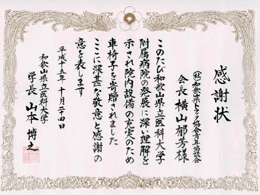 感謝状
会長 横山郁芳様
このたび和歌山県立医科大学
附属病院の発展に深い理解を
示され院内設備の充実のため
車椅子を寄贈されました
ここに深甚な敬意と感謝の
意を表します
平成十五年十月二十四日
和歌山県立医科大学
学長 山本博之